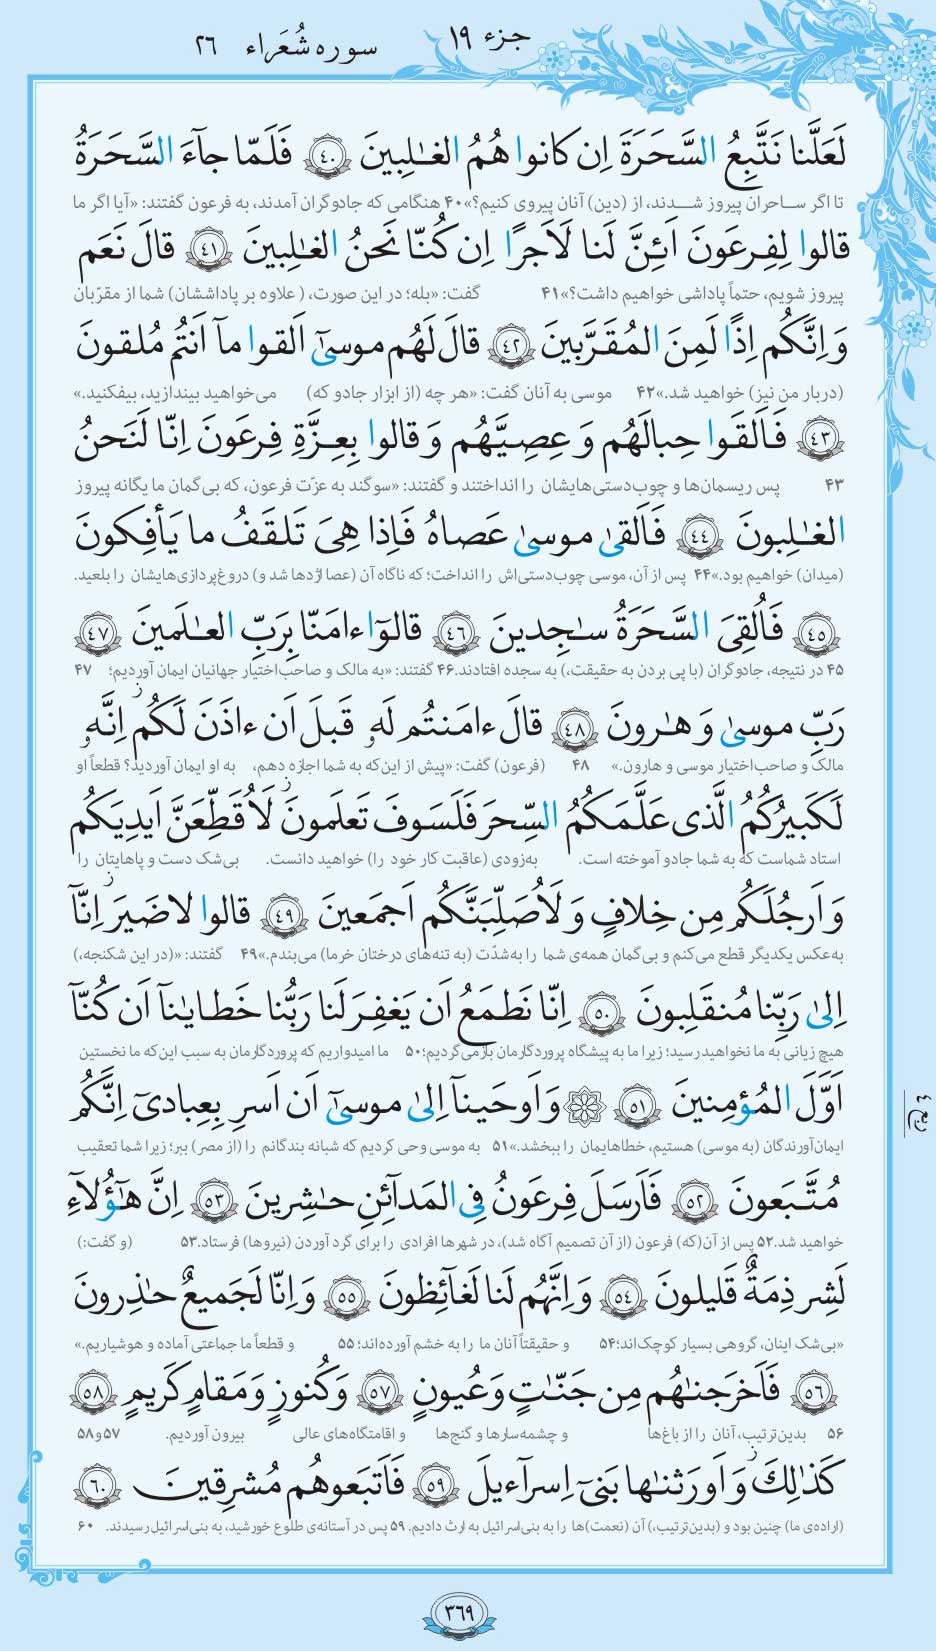 جزء ۱۹
سوره شُعَراء ۲۶
لَعَلَّنا نَتَّبِعُ السَّحَرَةَ اِن کانوا هُمُ الغـٰلِبینَ ۴۰ فَلَمّا جآءَ السَّحَرَةُ
تا اگر ساحران پیروز شدند، از (دین) آنان پیروی کنیم؟»۴۰ هنگامی که جادوگران آمدند، به فرعون گفتند: «آیا اگر ما
قالوا لِفِرعَونَ اَئِنَّ لَنا لَاَجرًا اِن کُنّا نَحنُ الغـٰلِبینَ ۴۱ قالَ نَعَم
پیروز شویم، حتماً پاداشی خواهیم داشت؟»۴۱ گفت: «بله؛ در این صورت، (علاوه بر پاداشتان) شما از مقرّبان
وَ اِنَّکُم اِذًا لَمِنَ المُقَرَّبینَ ۴۲ قالَ لَهُم موسیٰٓ اَلقوا مآ اَنتُم مُلقونَ
(دربار من نیز) خواهید شد.»۴۲ موسی به آنان گفت: «هر چه (از ابزار جادو که) می‌خواهید بیندازید، بیفکنید.»
۴۳ فَاَلقَوا حِبالَهُم وَ عِصِیَّهُم وَ قالوا بِعِزَّةِ فِرعَونَ اِنّا لَنَحنُ
۴۳ پس ریسمان‌ها و چوب‌دستی‌هایشان را انداختند و گفتند: «سوگند به عزّت فرعون، که بی‌گمان ما یگانه پیروز
الغـٰلِبونَ ۴۴ فَاَلقیٰ موسیٰ عَصاهُ فَاِذا هِیَ تَلقَفُ ما یَأفِکونَ
(میدان) خواهیم بود.»۴۴ پس از آن، موسی چوب‌دستی‌اش را انداخت؛ که ناگاه آن (عصا اژدها شد و) دروغ‌پردازی‌هایشان را بلعید.
۴۵ فَاُلقِیَ السَّحَرَةُ سـٰجِدینَ ۴۶ قالوٓا ءامَنّا بِرَبِّ العـٰلَمینَ ۴۷
۴۵ در نتیجه، جادوگران (با پی بردن به حقیقت،) به سجده افتادند.۴۶ گفتند: «به مالک و صاحب‌اختیار جهانیان ایمان آوردیم؛ ۴۷
رَبِّ موسیٰ وَ هـٰرونَ ۴۸ قالَ ءامَنتُم لَهٗ قَبلَ اَن ءاذَنَ لَکُم ز اِنَّهٗ
مالک و صاحب‌اختیار موسی و هارون.» ۴۸ (فرعون) گفت: «پیش از این‌که به شما اجازه دهم، به او ایمان آوردید؟ قطعاً او
لَکَبیرُکُمُ الَّذی عَلَّمَکُمُ السِّحرَ فَلَسَوفَ تَعلَمونَ ز لَاُقَطِّعَنَّ اَیدِیَکُم
استاد شماست که به شما جادو آموخته است. به‌زودی (عاقبت کار خود را) خواهید دانست. بی‌شک دست و پاهایتان را
وَ اَرجُلَکُم مِن خِلافٍ وَ لَاُصَلِّبَنَّکُم اَجمَعینَ ۴۹ قالوا لا ضَیرَ ز اِنّآ
به‌عکس یکدیگر قطع می‌کنم و بی‌گمان همه‌ی شما را به‌شدّت (به تنه‌های درختان خرما) می‌بندم.»۴۹ گفتند: «(در این شکنجه،)
اِلیٰ رَبِّنا مُنقَلِبونَ ۵۰ اِنّا نَطمَعُ اَن یَغفِرَ لَنا رَبُّنا خَطـایـٰنآ اَن کُنّآ
هیچ زیانی به ما نخواهید رسید؛ زیرا ما به پیشگاه پروردگارمان بازمی‌گردیم؛۵۰ ما امیدواریم که پروردگارمان به سبب این‌که ما نخستین
اَوَّلَ المُؤمِنینَ ۵۱ ۞ وَ اَوحَینآ اِلیٰ موسیٰٓ اَن اَسرِ بِعِبادیٓ اِنَّکُم
ایمان‌آورندگان (به موسی) هستیم، خطاهایمان را ببخشد.»۵۱ به موسی وحی کردیم که شبانه بندگانم را (از مصر) ببر؛ زیرا شما تعقیب
مُتَّبَعونَ ۵۲ فَاَرسَلَ فِرعَونُ فِی المَدآئِنِ حـٰشِرینَ ۵۳ اِنَّ هـٰٓؤُلآءِ
خواهید شد.۵۲ پس از آن(که) فرعون (از آن تصمیم آگاه شد)، در شهرها افرادی را برای گرد آوردن (نیروها) فرستاد.۵۳ (و گفت:)
لَشِرذِمَةٌ قَلیلونَ ۵۴ وَ اِنَّهُم لَنا لَغآئِظونَ ۵۵ وَ اِنّا لَجَمیعٌ حـٰذِرونَ
«بی‌شک اینان، گروهی بسیار کوچک‌اند؛۵۴ و حقیقتاً آنان ما را به خشم آورده‌اند؛ ۵۵ و قطعاً ما جماعتی آماده و هوشیاریم.»
۵۶ فَاَخرَجنـٰهُم مِن جَنّـٰتٍ وَ عُیونٍ ۵۷ وَ کُنوزٍ وَ مَقامٍ کَریمٍ ۵۸
۵۶ بدین‌ترتیب، آنان را از باغ‌ها و چشمه‌سارها و گنج‌ها و اقامتگاه‌های عالی بیرون آوردیم. ۵۷و۵۸
کَذٰلِکَ ز وَ اَورَثنـٰها بَنیٓ اِسرآءیلَ ۵۹ فَاَتبَعوهُم مُشرِقینَ ۶۰
(اراده‌ی ما) چنین بود و (بدین‌ترتیب،) آن (نعمت)ها را به بنی‌اسرائیل به ارث دادیم. ۵۹ پس در آستانه‌ی طلوع خورشید، به بنی‌اسرائیل رسیدند. ۶۰
ربع ۴
۳۶۹